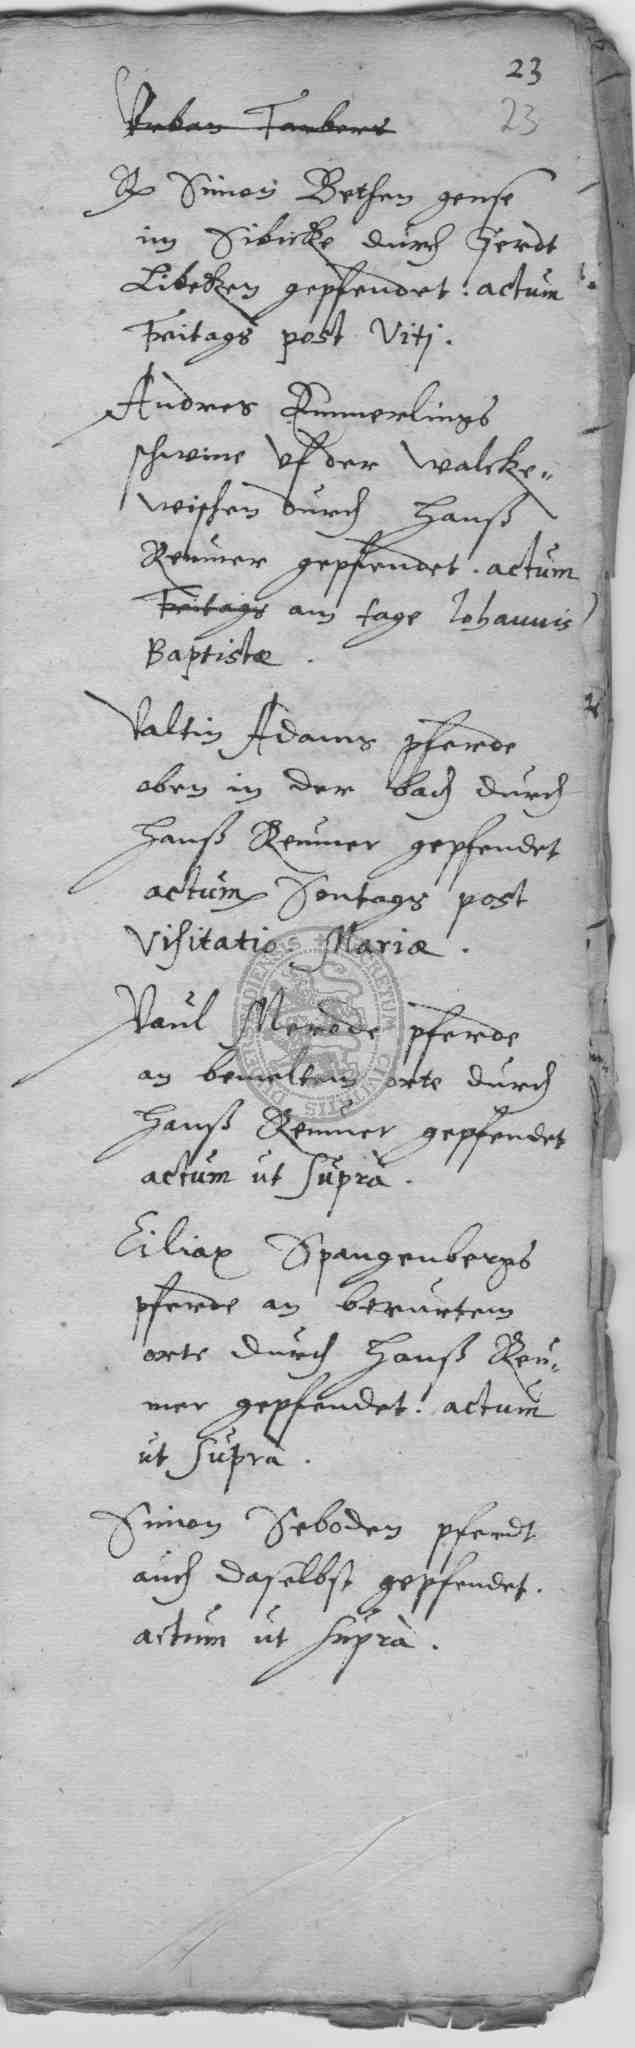 23
23
Urban Taubers
Rp Simon Bethen gense
im Sibicke durch Gerdt
Libeken gepfendet. actum
Freitags post Viti.
Andres Kummerlings
schweine uf der Walcke„
wischen durch Hanß
Reumer gepfendet. actum
Freitags am tage Johannis
Baptistæ.
Valtin Adams pferde
oben in der bach durch
Hanß Reumer gepfendet
actum Sontags post
Visitatio. Mariæ.
Paul Merode pferde
an bemeltem orte durch
Hanß Reumer gepfendet
actum ut suprà.
Ciliax Spangenbergs
pferde an berurtem
orte durch Hanß Reu„
mer gepfendet. actum
ut suprà.
Simon Seboden pferdt
auch daselbst gepfendet.
actum ut suprà.